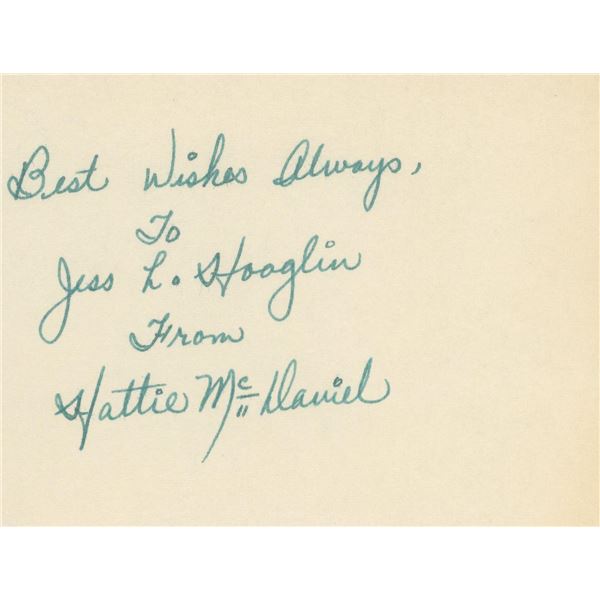 Best Wishes Always,
To
Jess L. Hooglin
From
Hattie McDaniel